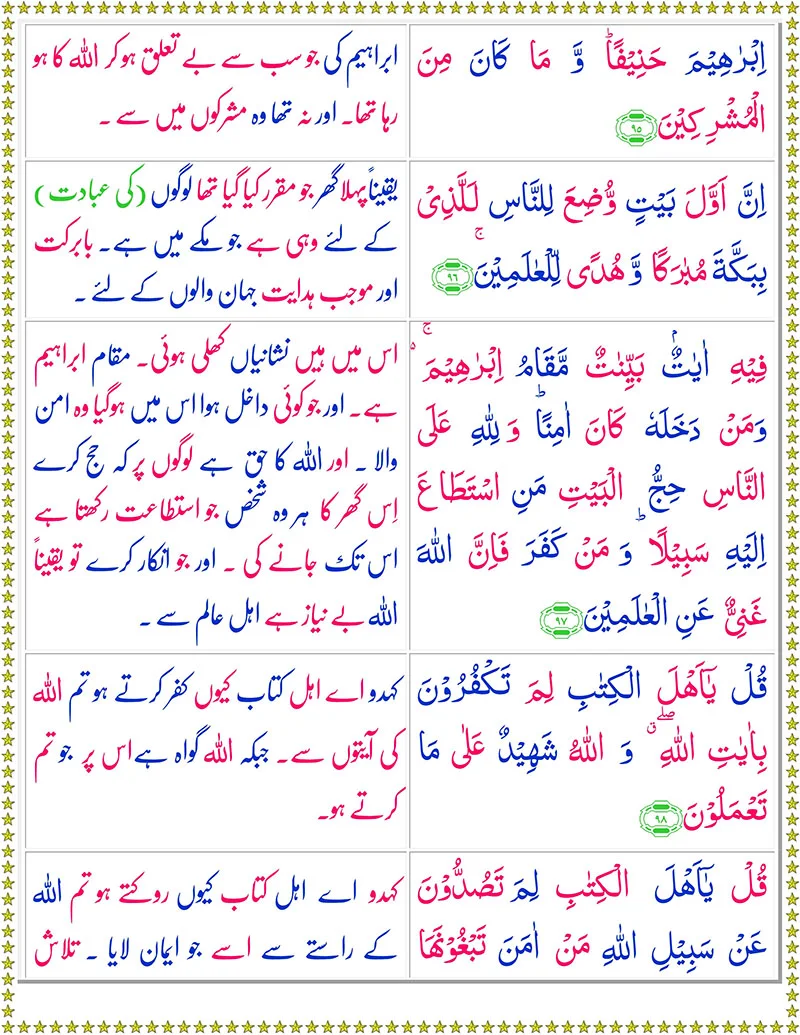 اِبْرٰهِیْمَ حَنِیْفًاؕ وَّ مَا کَانَ مِنَ
الْمُشْرِکِیْنَ ۹۵
ابراہیم کی جو سب سے بے تعلق ہو کر اللہ کا ہو
رہا تھا۔ اور نہ تھا وہ مشرکوں میں سے ۔
اِنَّ اَوَّلَ بَیْتٍ وُّضِعَ لِلنَّاسِ لَلَّذِیْ
بِبَکَّۃَ مُبٰرَکًا وَّ هُدًی لِّلْعٰلَمِیْنَۚ ۹۶
یقیناً پہلا گھر جو مقرر کیا گیا تھا لوگوں (کی عبادت )
کے لئے وہی ہے جو مکے میں ہے۔ بابرکت
اور موجب ہدایت جہان والوں کے لئے ۔
فِیْهِ اٰیٰتٌۢ بَیِّنٰتٌ مَّقَامُ اِبْرٰهِیْمَ ۬ۚ
وَمَنْ دَخَلَهٗ کَانَ اٰمِنًاؕ وَ لِلّٰهِ عَلَی
النَّاسِ حِجُّ الْبَیْتِ مَنِ اسْتَطَاعَ
اِلَیْهِ سَبِیْلًاؕ وَ مَنْ کَفَرَ فَاِنَّ اللّٰهَ
غَنِیٌّ عَنِ الْعٰلَمِیْنَ ۹۷
اس میں ہیں نشانیاں کھلی ہوئی۔ مقام ابراہیم
ہے۔ اور جو کوئی داخل ہوا اس میں ہوگیا وہ امن
والا ۔ اور اللہ کا حق ہے لوگوں پر کہ حج کرے
اِس گھر کا ہر وہ شخص جو استطاعت رکھتا ہے
اس تک جانے کی ۔ اور جو انکار کرے تو یقیناً
اللہ بے نیاز ہے اہل عالم سے ۔
قُلْ یٰۤاَهْلَ الْکِتٰبِ لِمَ تَکْفُرُوْنَ
بِاٰیٰتِ اللّٰهِ ۖۗ وَ اللّٰهُ شَهِیْدٌ عَلٰی مَا
تَعْمَلُوْنَ ۹۸
کہدو اے اہل کتاب کیوں کفر کرتے ہو تم اللہ
کی آیتوں سے۔ جبکہ اللہ گواہ ہے اس پر جو تم
کرتے ہو۔
قُلْ یٰۤاَهْلَ الْکِتٰبِ لِمَ تَصُدُّوْنَ
عَنْ سَبِیْلِ اللّٰهِ مَنْ اٰمَنَ تَبْغُوْنَهَا
کہدو اے اہل کتاب کیوں روکتے ہو تم اللہ
کے راستے سے اسے جو ایمان لایا ۔ تلاش